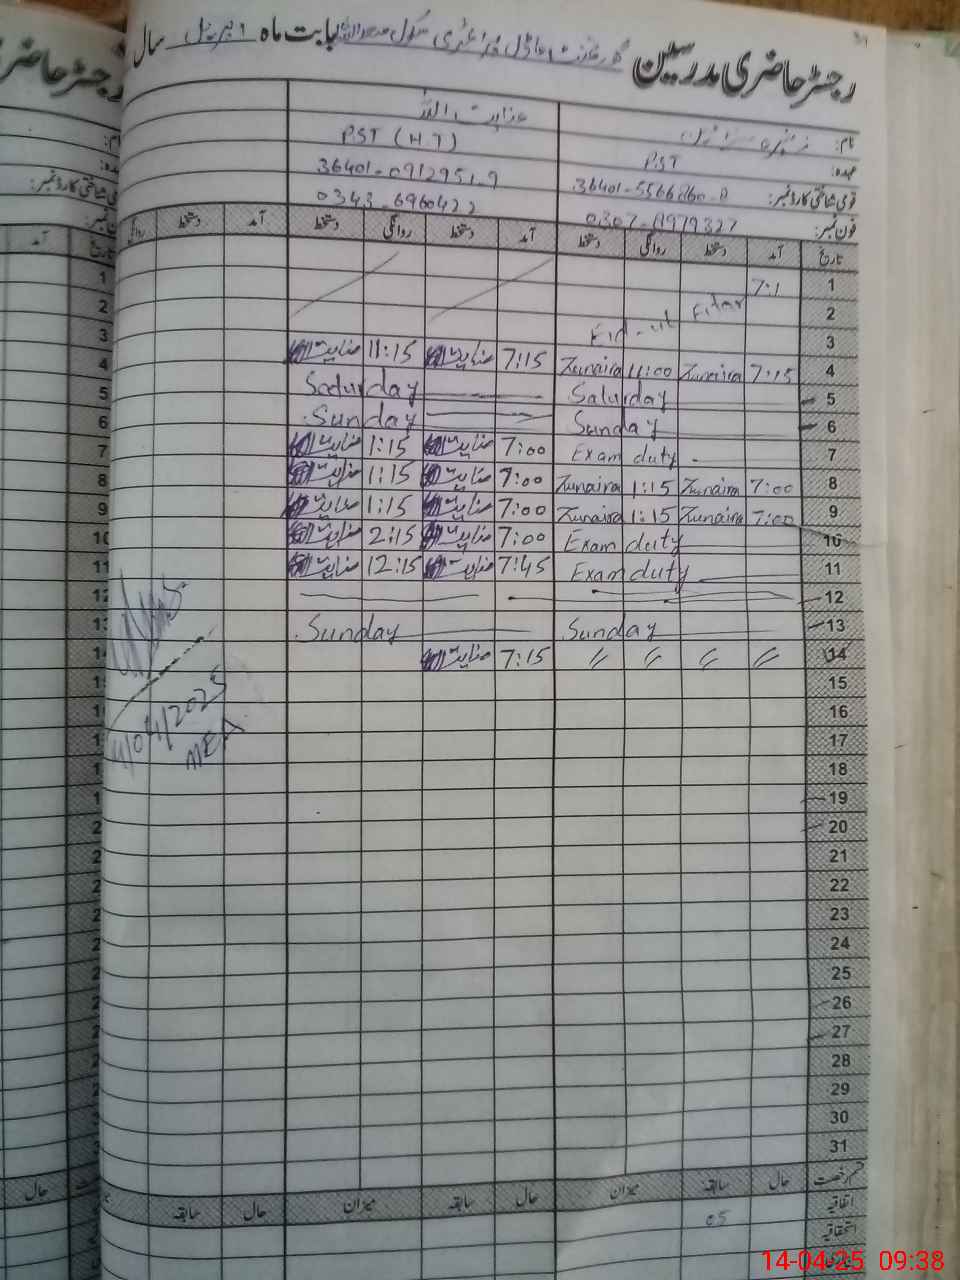 رجسٹر حاضری مدرسین گورنمنٹ ماڈل پرائمری سکول بابت ماہ اپریل سال
نام: عنایت اللہ
عہدہ: PST PST (H.T)
قومی شناختی کارڈ نمبر: 36401-5566860-8 36401-0912951-9
فون نمبر: 0307-8979327 0343-6960422
تاریخ آمد دستخط روانگی دستخط آمد دستخط روانگی دستخط آمد دستخط روانگی
1 7:1
2 Eid-ul Fitar
3
4 7:15 Zunaira 11:00 Zunaira 7:15 عنایت اللہ 11:15 عنایت اللہ
5 Saturday Saturday
6 Sunday Sunday
7 Exam duty 7:00 عنایت اللہ 1:15 عنایت اللہ
8 7:00 Zunaira 1:15 Zunaira 7:00 عنایت اللہ 1:15 عنایت اللہ
9 7:00 Zunaira 1:15 Zunaira 7:00 عنایت اللہ 1:15 عنایت اللہ
10 Exam duty 7:00 عنایت اللہ 2:15 عنایت اللہ
11 Exam duty 7:45 عنایت اللہ 12:15 عنایت اللہ
12
13 Sunday Sunday
14 〃 〃 〃 〃 7:15 عنایت اللہ
15
16
17
18
19
20
21
22
23
24
25
26
27
28
29
30
31
/04/2025
MEA
قسم رخصت حال سابقہ میزان حال سابقہ میزان حال سابقہ
اتفاقیہ 05
استحقاقیہ
رجسٹر حاضری
آمد
حال
14-04-25 09:38